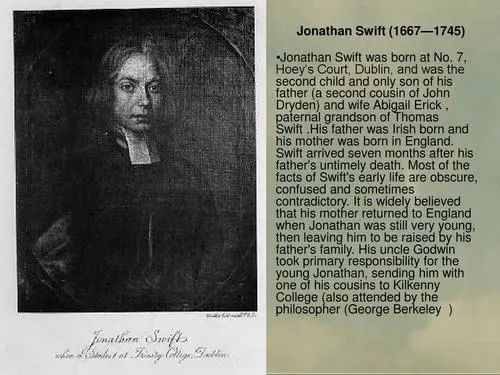 Jonathan Swift
when a Student at Trinity College, Dublin.
Jonathan Swift (1667—1745)
•Jonathan Swift was born at No. 7,
Hoey's Court, Dublin, and was the
second child and only son of his
father (a second cousin of John
Dryden) and wife Abigail Erick ,
paternal grandson of Thomas
Swift .His father was Irish born and
his mother was born in England.
Swift arrived seven months after his
father's untimely death. Most of the
facts of Swift's early life are obscure,
confused and sometimes
contradictory. It is widely believed
that his mother returned to England
when Jonathan was still very young,
then leaving him to be raised by his
father's family. His uncle Godwin
took primary responsibility for the
young Jonathan, sending him with
one of his cousins to Kilkenny
College (also attended by the
philosopher (George Berkeley  )